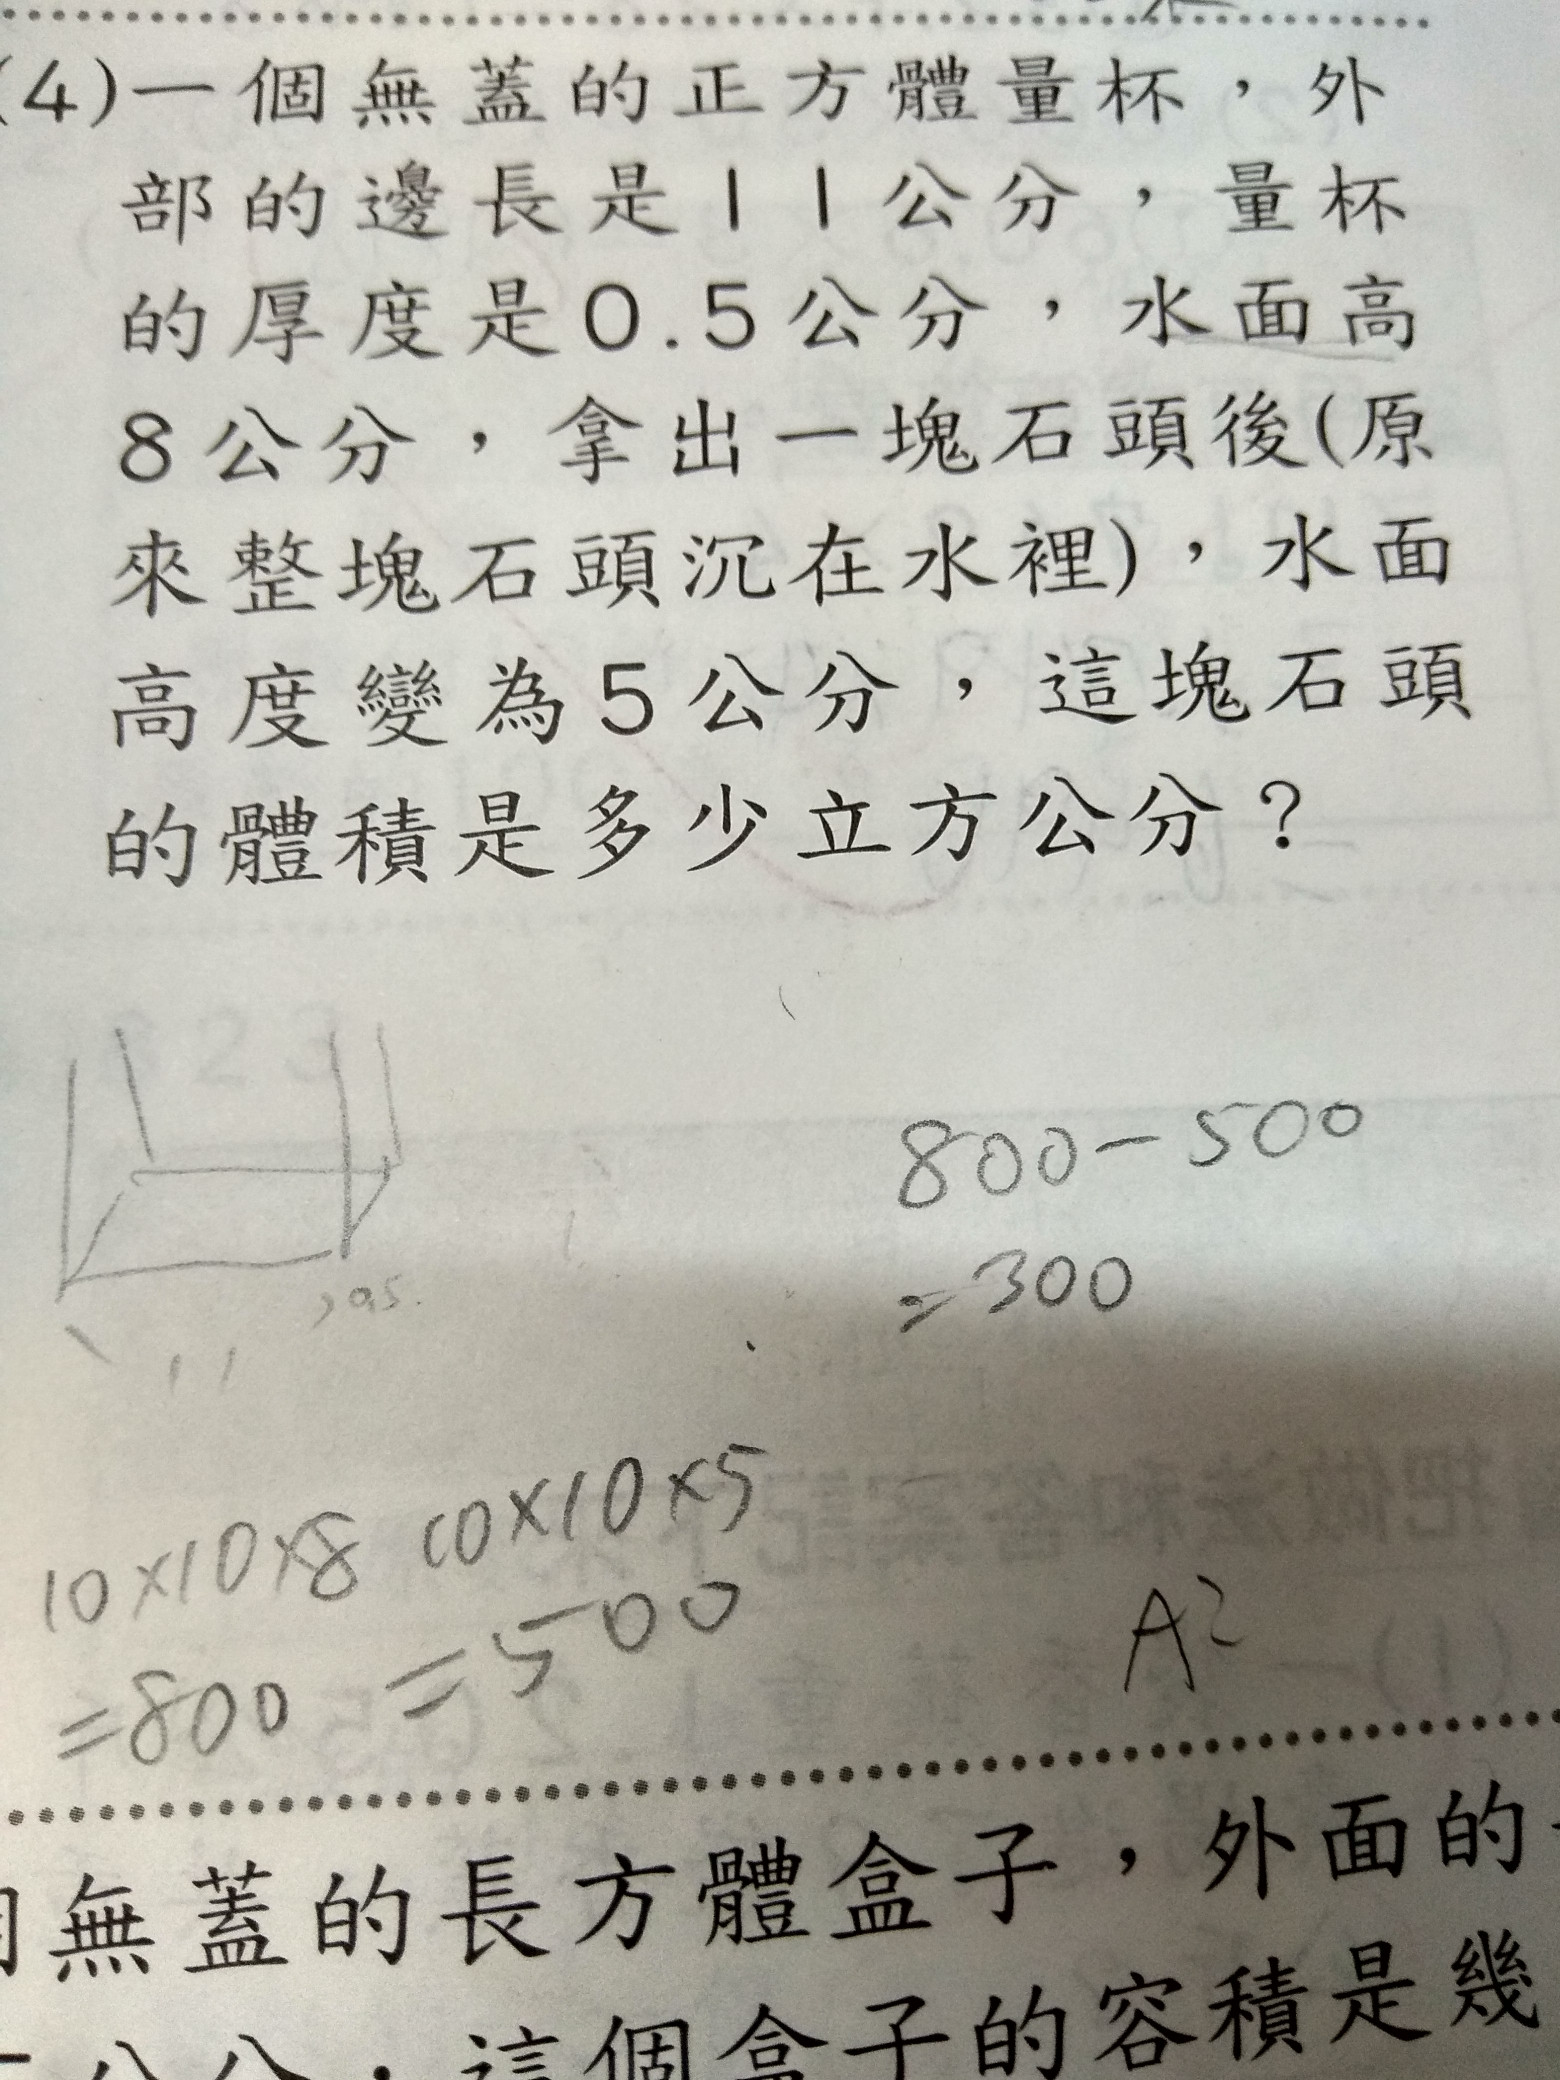 (4)一個無蓋的正方體量杯，外
部的邊長是11公分，量杯
的厚度是0.5公分，水面高
8公分，拿出一塊石頭後(原
來整塊石頭沉在水裡)，水面
高度變為5公分，這塊石頭
的體積是多少立方公分？
800-500
=300
0.5
11
10×10×8
=800
10×10×5
=500
A:
無蓋的長方體盒子，外面的
這個盒子的容積是幾